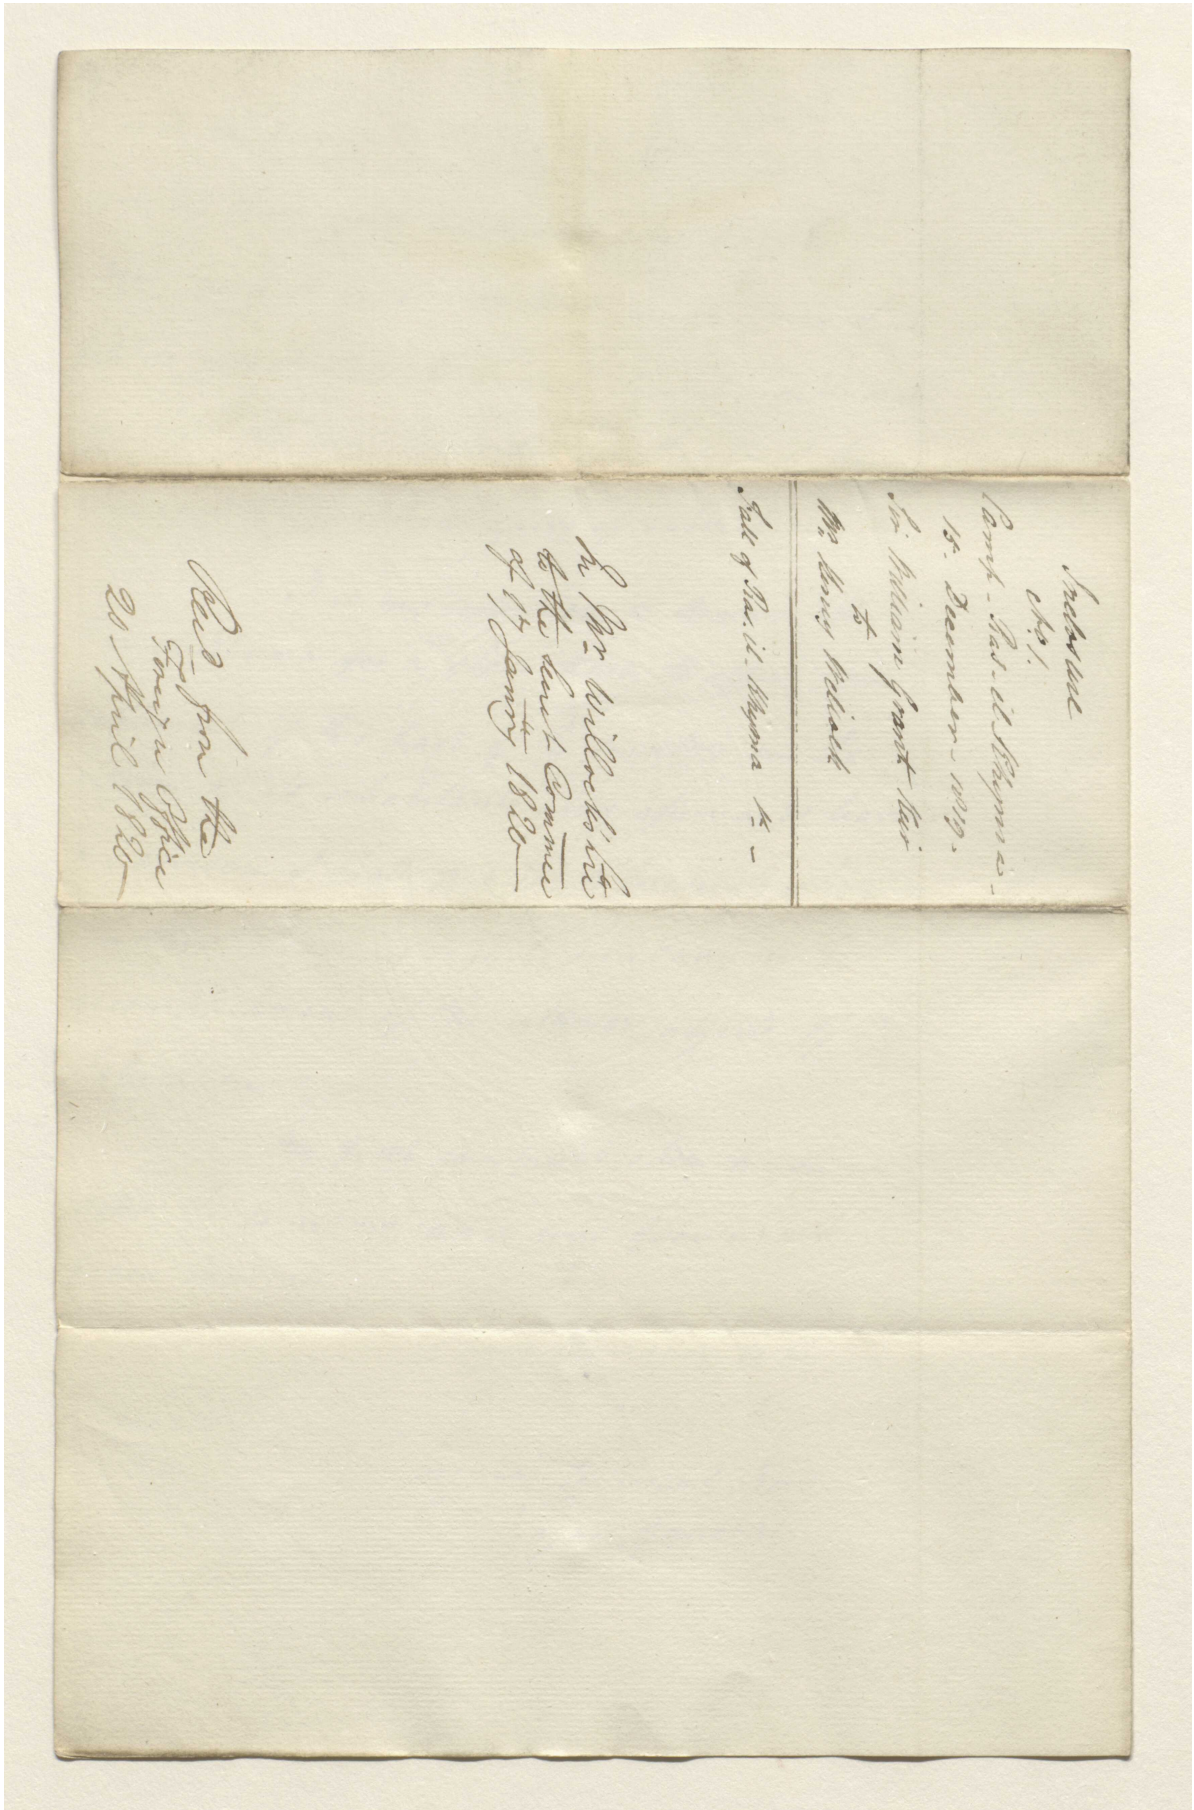 Inclosure
No. 1.
Camp - Ras-el Khyma -
15. December - 1819 -
Sir William Grant Keir
to
Mr. Henry Willock
Fall of Ras. el. Khyma &c. -
In Mr. Willock's Lre
to the Secret Commee
of 7th Janry 1820
Recd from the
Foreign Office
20 April 1820